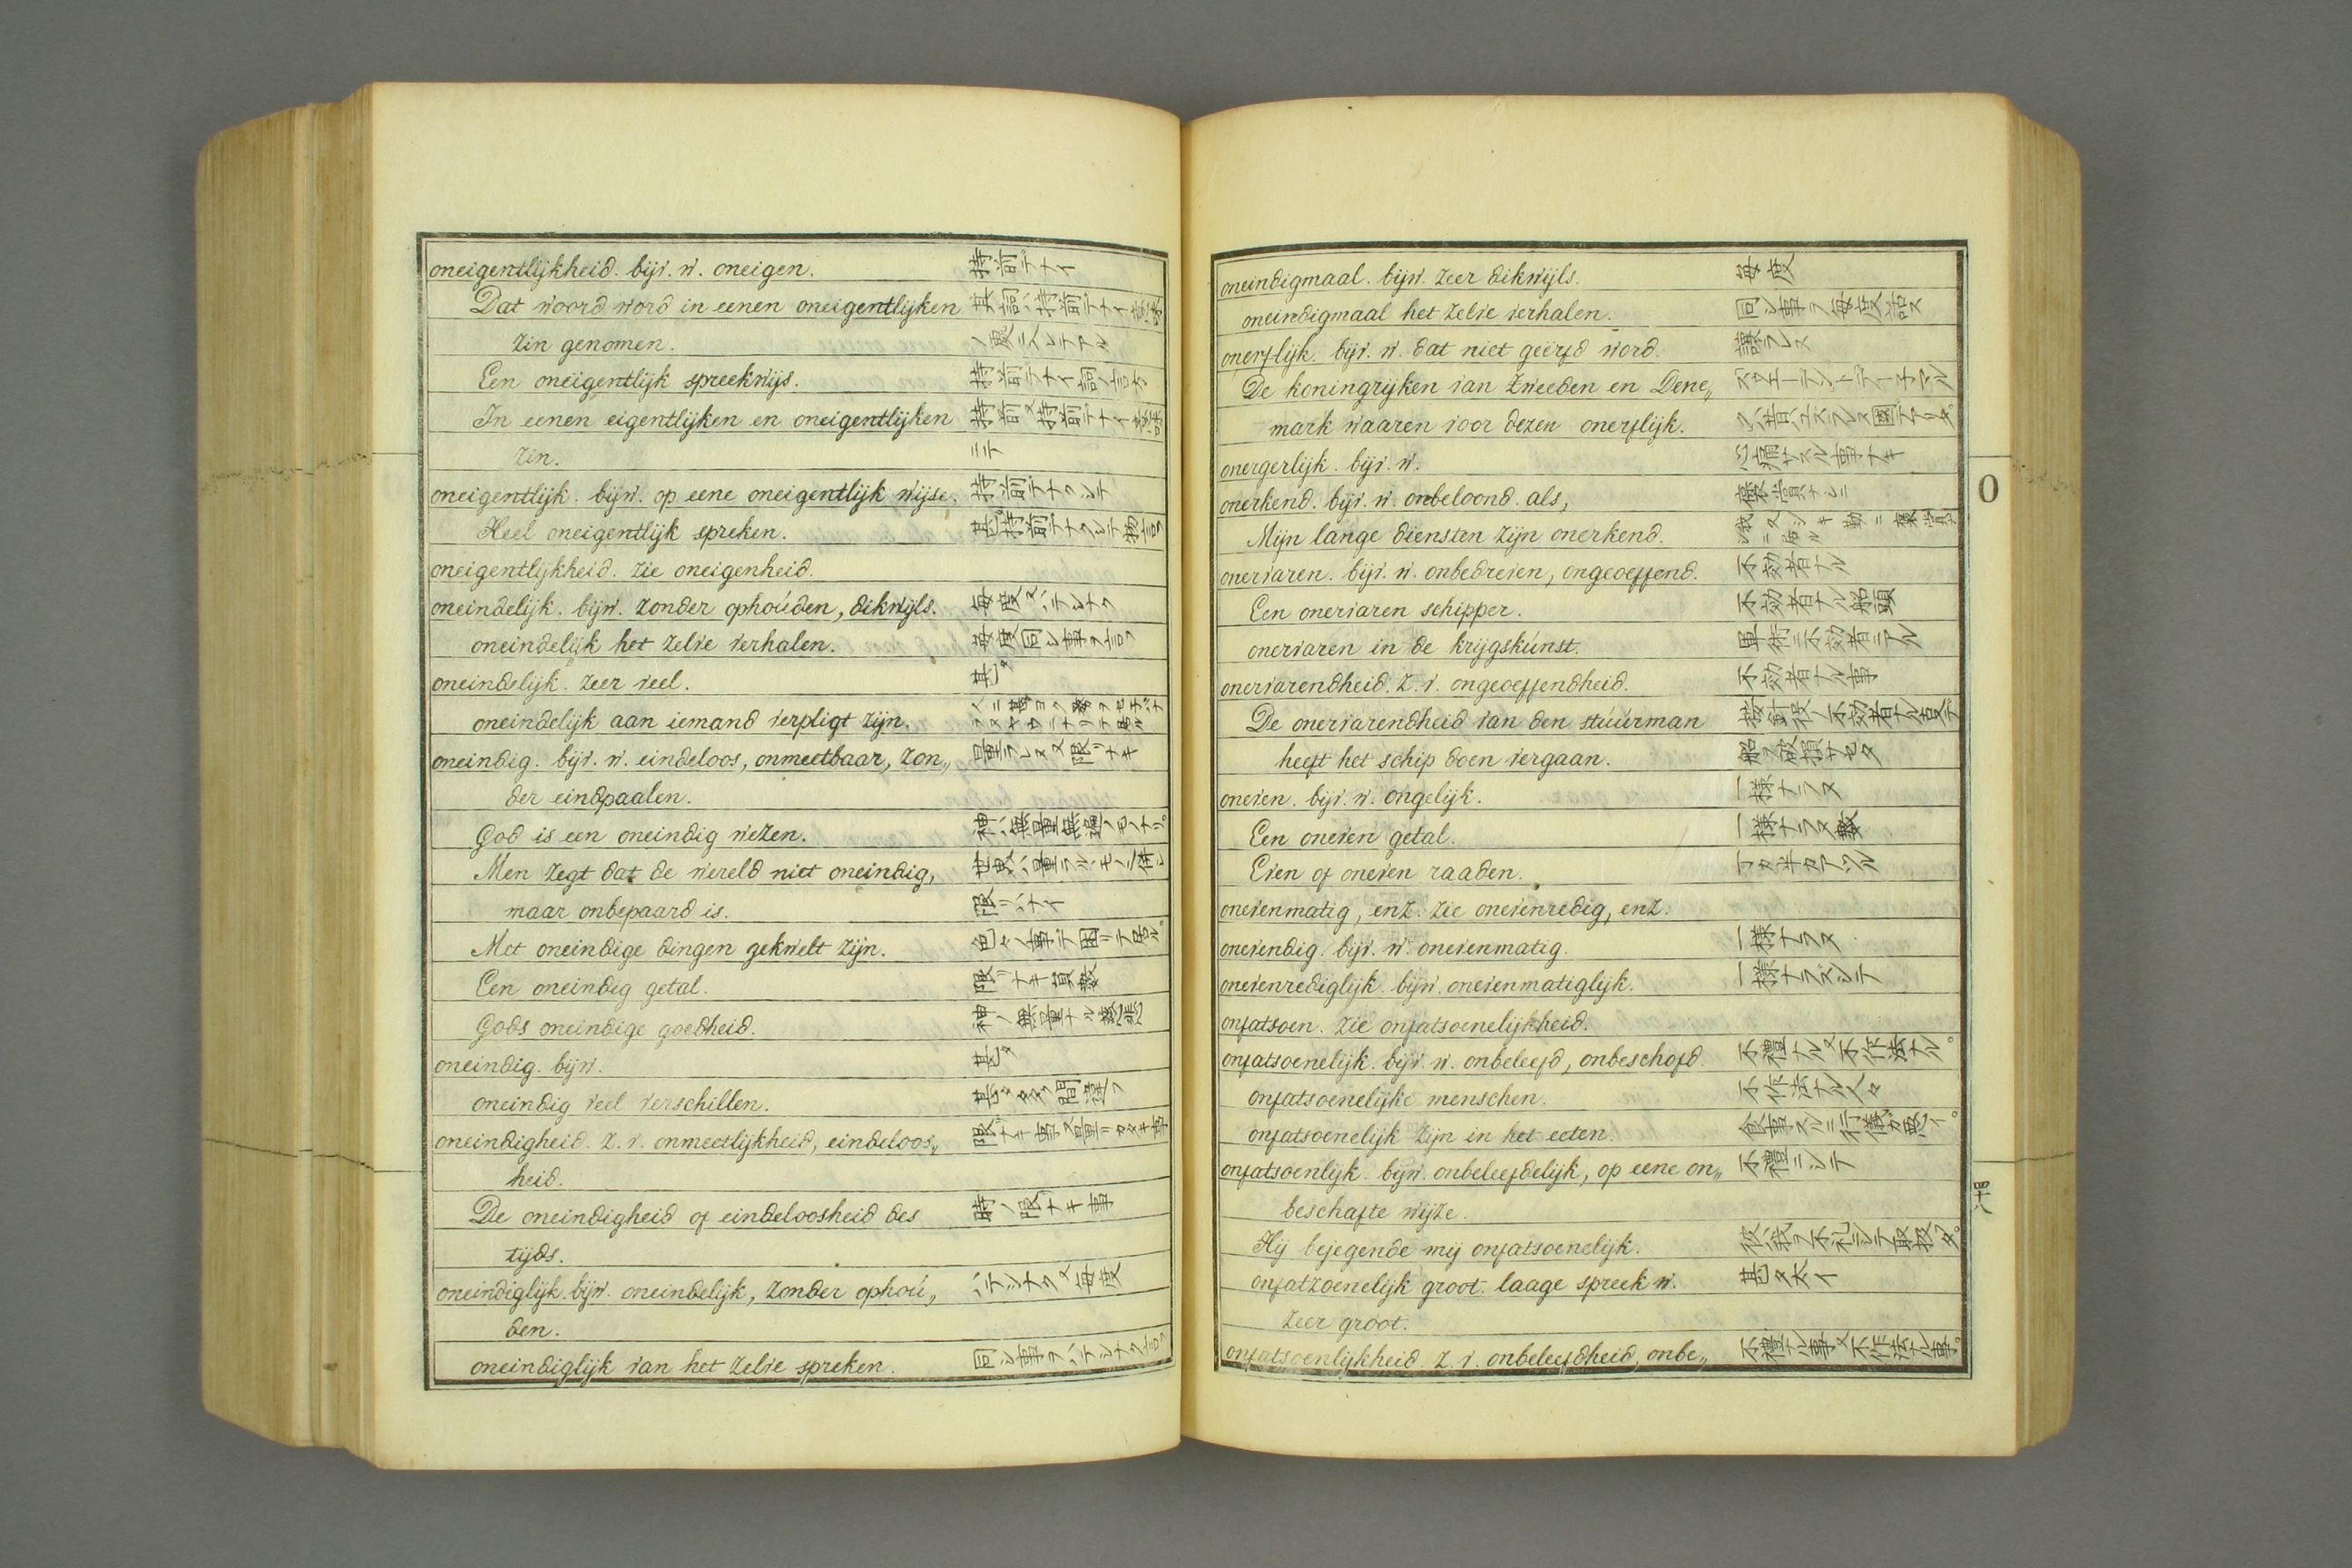 oneigentlijkheid. bijv. w. oneigen. 持前デナイ
Dat woord word in eenen oneigentlijken 其詞ハ持前デナイ意味
zin genomen. ノ處ニ入レテアル
Een oneigentlijk spreekwijs. 持前デナイ詞ノ言方
In eenen eigentlijken en oneigentlijken 持前又持前デナイ意味
zin. ニテ
oneigentlijk. bijw. op eene oneigentlijk wijse. 持前デナクシテ
Heel oneigentlijk spreken. 甚タ持前デナクシテ物言フ
oneigentlijkheid. zie oneigenheid.
oneindelijk. bijw. zonder ophoúden, dikwijls. 毎度又ハテシナク
oneindelijk het zelve verhalen. 毎度同シ事ヲ言フ
oneindelijk. zeer veel. 甚タ
oneindelijk aan iemand verpligt zijn.
oneindig. bijv. w. eindeloos, onmeetbaar, zon„ 量ラレヌ又限リナキ
der eindpaalen.
God is een oneindig wezen. 神ハ無量無邊ノモノナリ。
Men zegt dat de wereld niet oneindig, 世界ハ量ラルヽモノ
maar onbepaard is. 限リハナイ
Met oneindige dingen gekwelt zijn. 色々ノ事デ困リテ居ル。
Een oneindig getal. 限リナキ員數
Gods oneindige goedheid. 神ノ無量ナル慈悲
oneindig. bijw. 甚タ
oneindig veel verschillen. 甚シク間違フ
oneindigheid. z. v. onmeetlijkheid, eindeloos„ 限ナキ事又量リ
heid.
De oneindigheid of eindeloosheid des 時ノ限ナキ事
tijds.
oneindiglijk. bijw. oneindelijk, zonder ophoú„ ハテシナク又毎度
den.
oneindiglijk van het zelve spreken. 同シ事ヲハテシナク言フ
oneindigmaal. bijw. zeer dikwijls. 毎度
oneindigmaal het zelve verhalen. 同シ事ヲ毎度話ス
onerflijk. bijv. w. dat niet geërfd word. 譲ラレヌ
De koningrijken van Zweeden en Dene„
mark waaren voor dezen onerflijk.
onergerlijk. bijv. w. 心痛サスル事ナキ
onerkend. bijv. w. onbeloond. als, 褒賞ナシニ
Mijn lange diensten zijn onerkend.
onervaren. bijv. w. onbedreven, ongeoeffend. 不効者ナル
Een onervaren schipper. 不効者ナル船頭
onervaren in de krijgskúnst. 軍術ニ不効者ニアル
onervarendheid. z. v. ongeoeffendheid. 不効者ナル事
De onervarendheid van den stúúrman 按針役ノ不効者ナル
heeft het schip doen vergaan. 船ヲ破損サセタ
oneven. bijv. w. ongelijk. 一様ナラヌ
Een oneven getal. 一様ナラヌ數
Even of oneven raaden. 丁カ半カアツル
onevenmatig, enz. zie onevenredig, enz.
onevendig. bijv. w. onevenmatig. 一様ナラヌ
onevenrediglijk. bijw. onevenmatiglijk. 一様ナラズシテ
onfatsoen. zie onfatsoenelijkheid.
onfatsoenelijk. bijv. w. onbeleefd, onbeschofd. 不禮ナル又不作法ナル。
onfatsoenelijke menschen. 不作法ナル人々
onfatsoenelijk zijn in het eeten. 食事スルニ行儀ガ悪イ。
onfatsoenlijk. bijw. onbeleefdelijk, op eene on„ 不禮ニシテ
beschafte wijze.
Hij bejegende mij onfatsoenelijk. 彼ハ我ヲ不礼ニシテ取扱タ。
onfatzoenelijk groot. laage spreek w. 甚タ大イ
zeer groot.
onfatsoenlijkheid. z. v. onbeleefdheid, onbe„ 不禮ナル事又不作法ナル事。
O